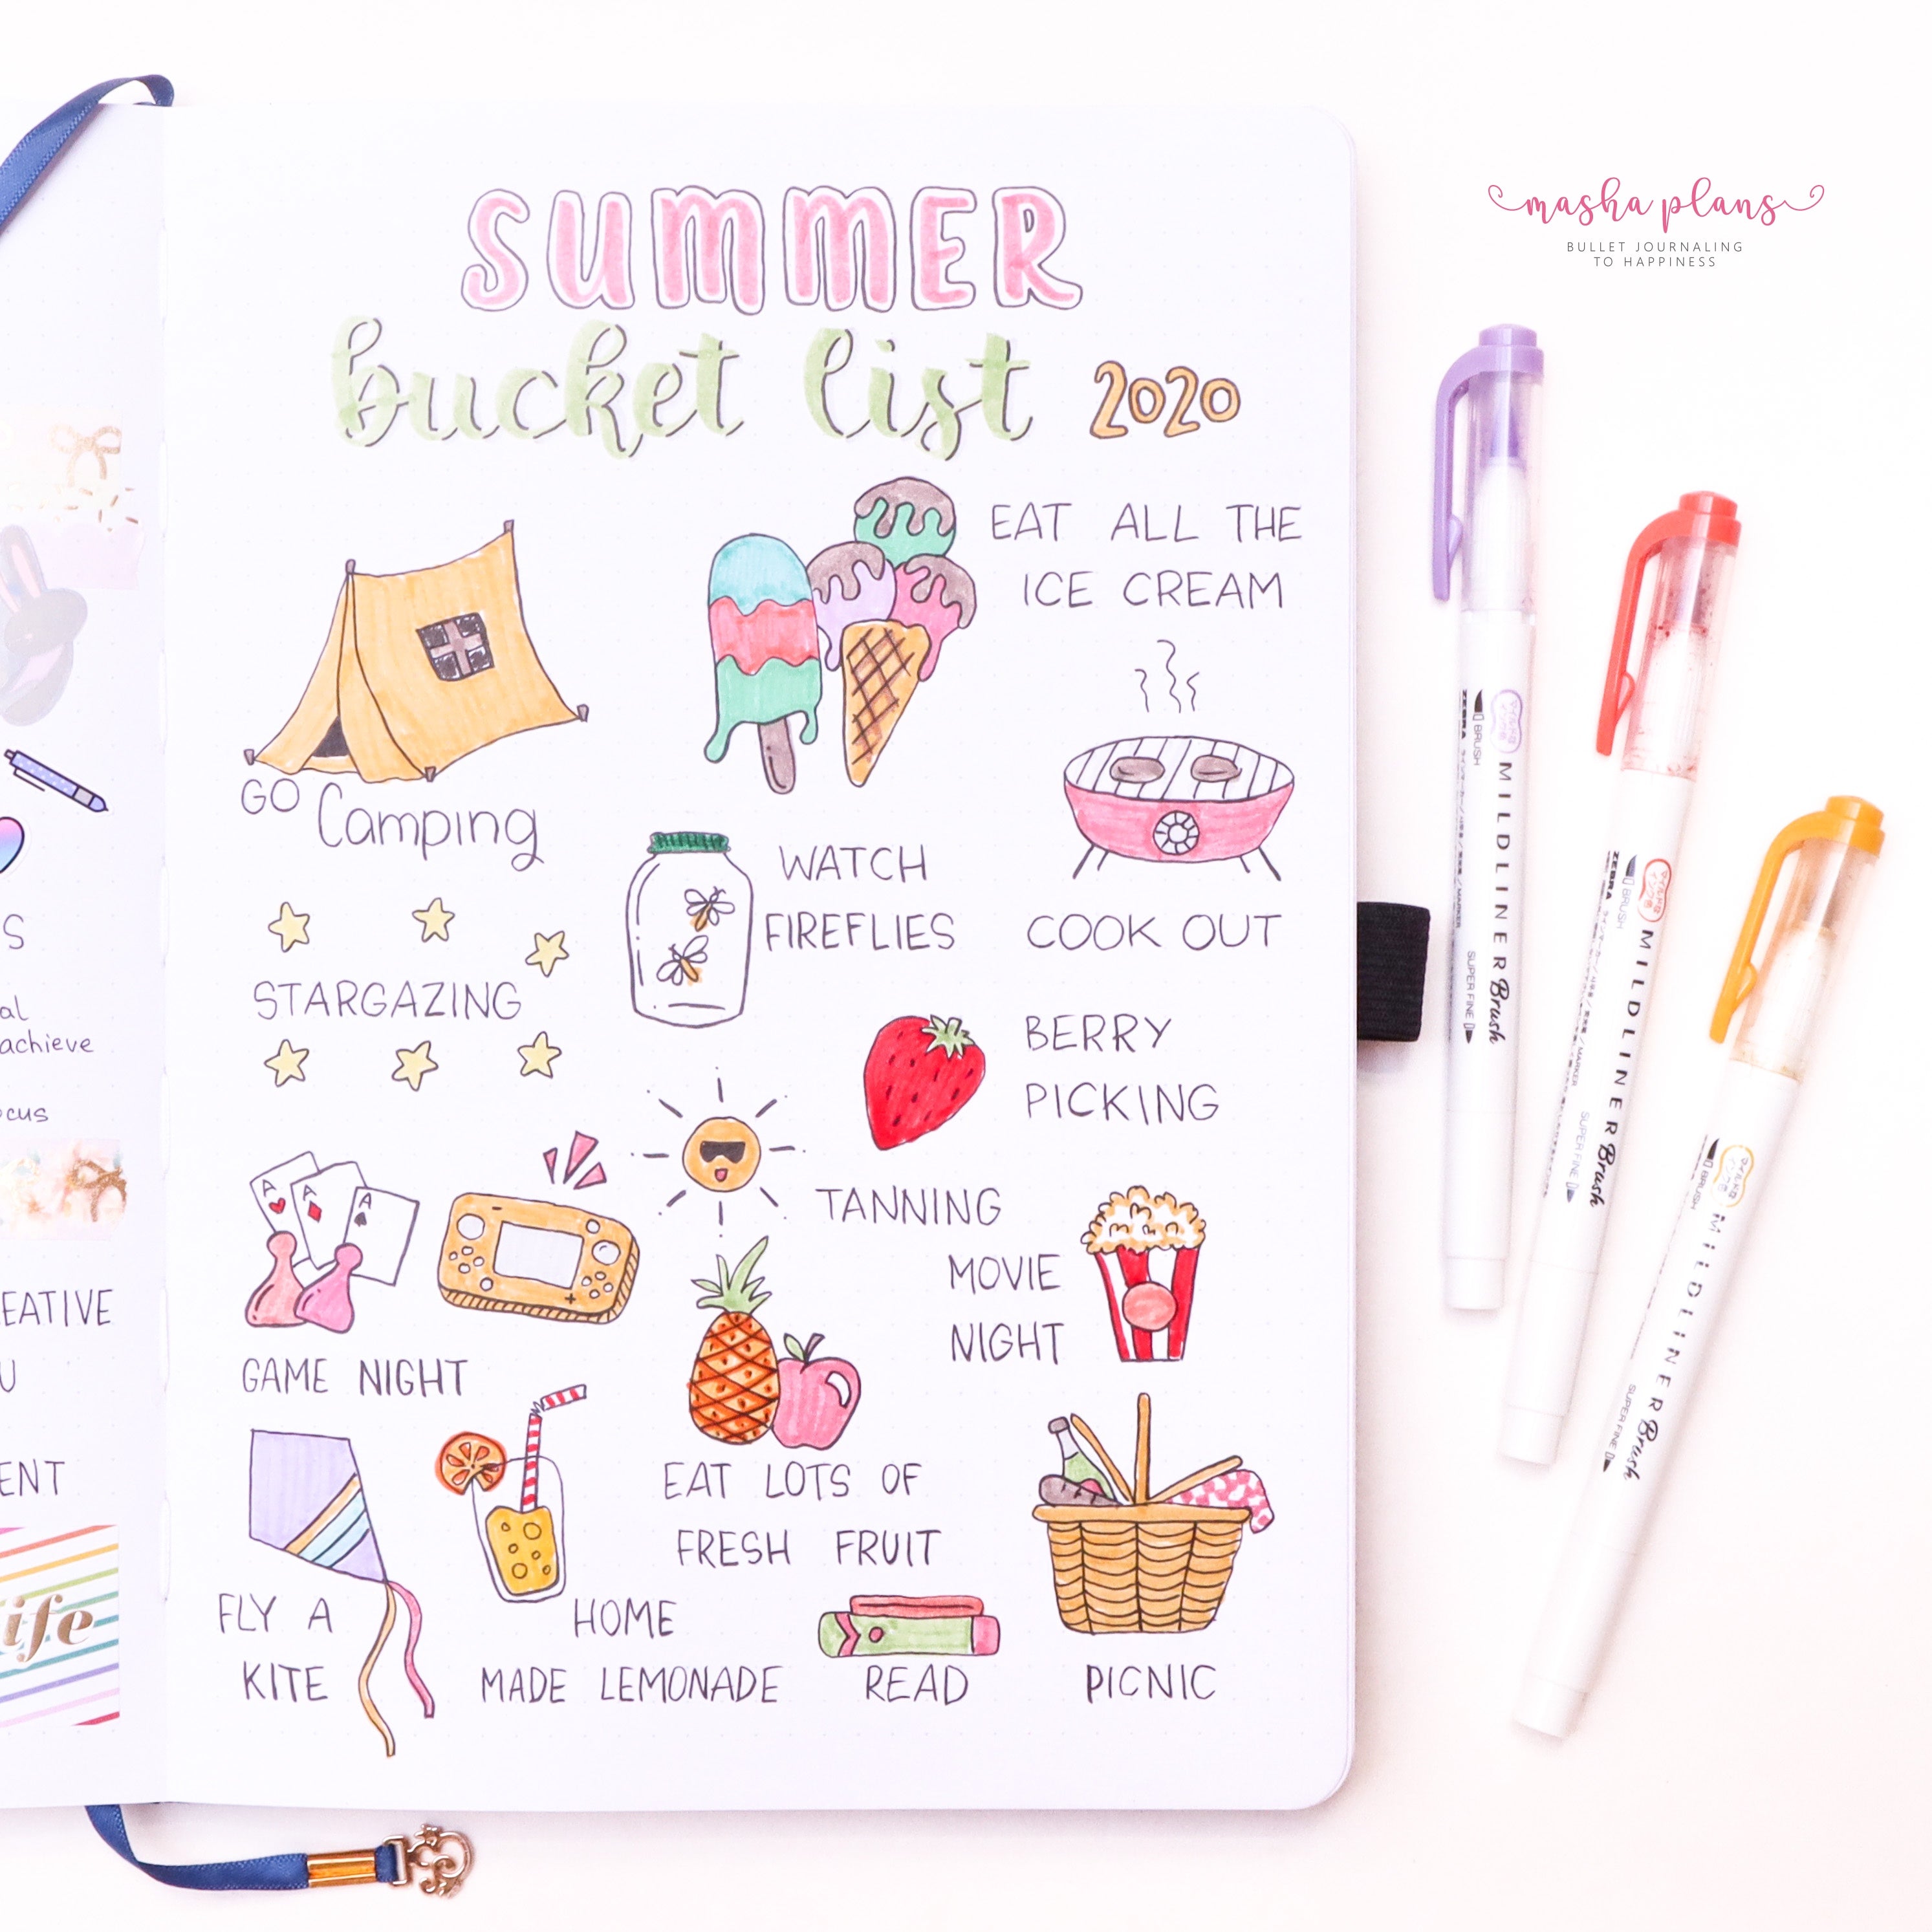 SUMMER
bucket list 2020
masha plans
BULLET JOURNALING
TO HAPPINESS
EAT ALL THE
ICE CREAM
GO Camping
WATCH
FIREFLIES
COOK OUT
STARGAZING
BERRY
PICKING
A
A
A
TANNING
MOVIE
NIGHT
GAME NIGHT
EAT LOTS OF
FRESH FRUIT
FLY A
KITE
HOME
MADE LEMONADE
READ
PICNIC
S
al
achieve
ocus
EATIVE
U
ENT
ife
BRUSH
ZEBRA
MILDLINER Brush
SUPER FINE
MARKER
BRUSH
ZEBRA
MILDLINER Brush
SUPER FINE
MARKER
BRUSH
MILDLINER Brush
SUPER FINE